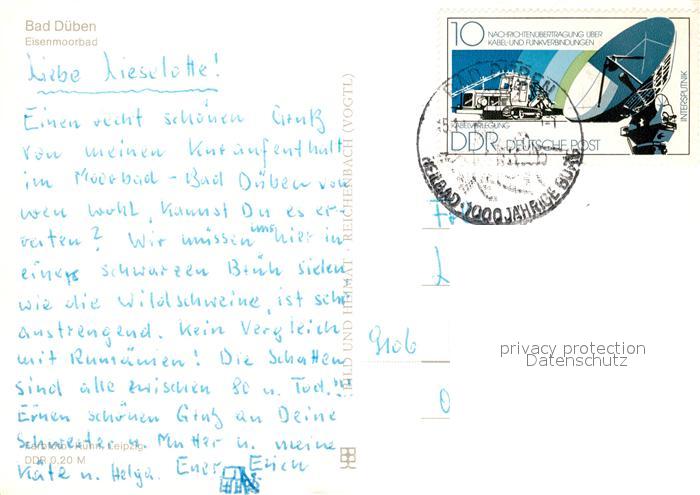 Bad Düben
Eisenmoorbad
Liebe Lieselotte!
Einen recht schönen Gruß
von meinen Kuraufenthalt
im Moorbad - Bad Düben von
wen wohl, kannst Du es er-
raten? Wir müssen uns hier in
einer schwarzen Brüh sielen
wie die Wildschweine, ist sehr
anstrengend. Kein Vergleich
mit Rumänien! Die Schatten
sind alle zwischen 80 u. Tod.!!
Einen schönen Gruß an Deine
Schwester u. Mutter u. meine
Käte u. Helga. Euer Erich
Farbfoto: Kühn, Leipzig
DDR 0,20 M
BILD UND HEIMAT · REICHENBACH (VOGTL)
10 NACHRICHTENÜBERTRAGUNG ÜBER
KABEL-UND FUNKVERBINDUNGEN
KABELVERLEGUNG
INTERSPUTNIK
DDR DEUTSCHE POST
BAD DÜBEN
HEILBAD · 1000 JÄHRIGE BURG
privacy protection
Datenschutz